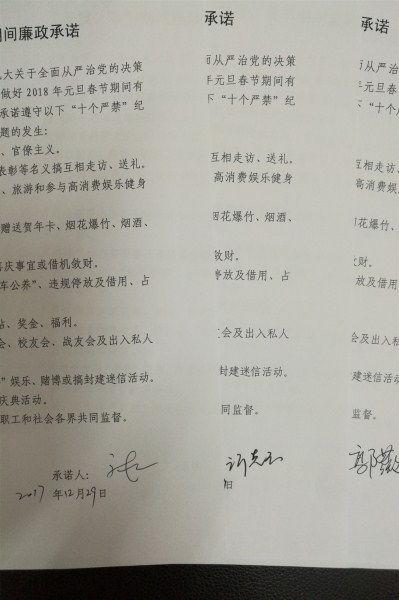 期间廉政承诺
九大关于全面从严治党的决策
做好 2018 年元旦春节期间有
承诺遵守以下“十个严禁”纪
题的发生：
、官僚主义。
表彰等名义搞互相走访、送礼。
、旅游和参与高消费娱乐健身
赠送贺年卡、烟花爆竹、烟酒、
喜庆事宜或借机敛财。
车公养”、违规停放及借用、占
贴、奖金、福利。
会、校友会、战友会及出入私人
”娱乐、赌博或搞封建迷信活动。
庆典活动。
职工和社会各界共同监督。
承诺人：
2017 年 12 月 29 日
承诺
从严治党的决策
年元旦春节期间有
下“十个严禁”纪
互相走访、送礼。
高消费娱乐健身
烟花爆竹、烟酒、
敛财。
停放及借用、占
会及出入私人
封建迷信活动。
同监督。
日
承诺
从严治党的决策
年元旦春节期间有
“十个严禁”纪
相走访、送礼。
高消费娱乐健身
花爆竹、烟酒、
敛财。
放及借用、占
会及出入私人
建迷信活动。
监督。
郭